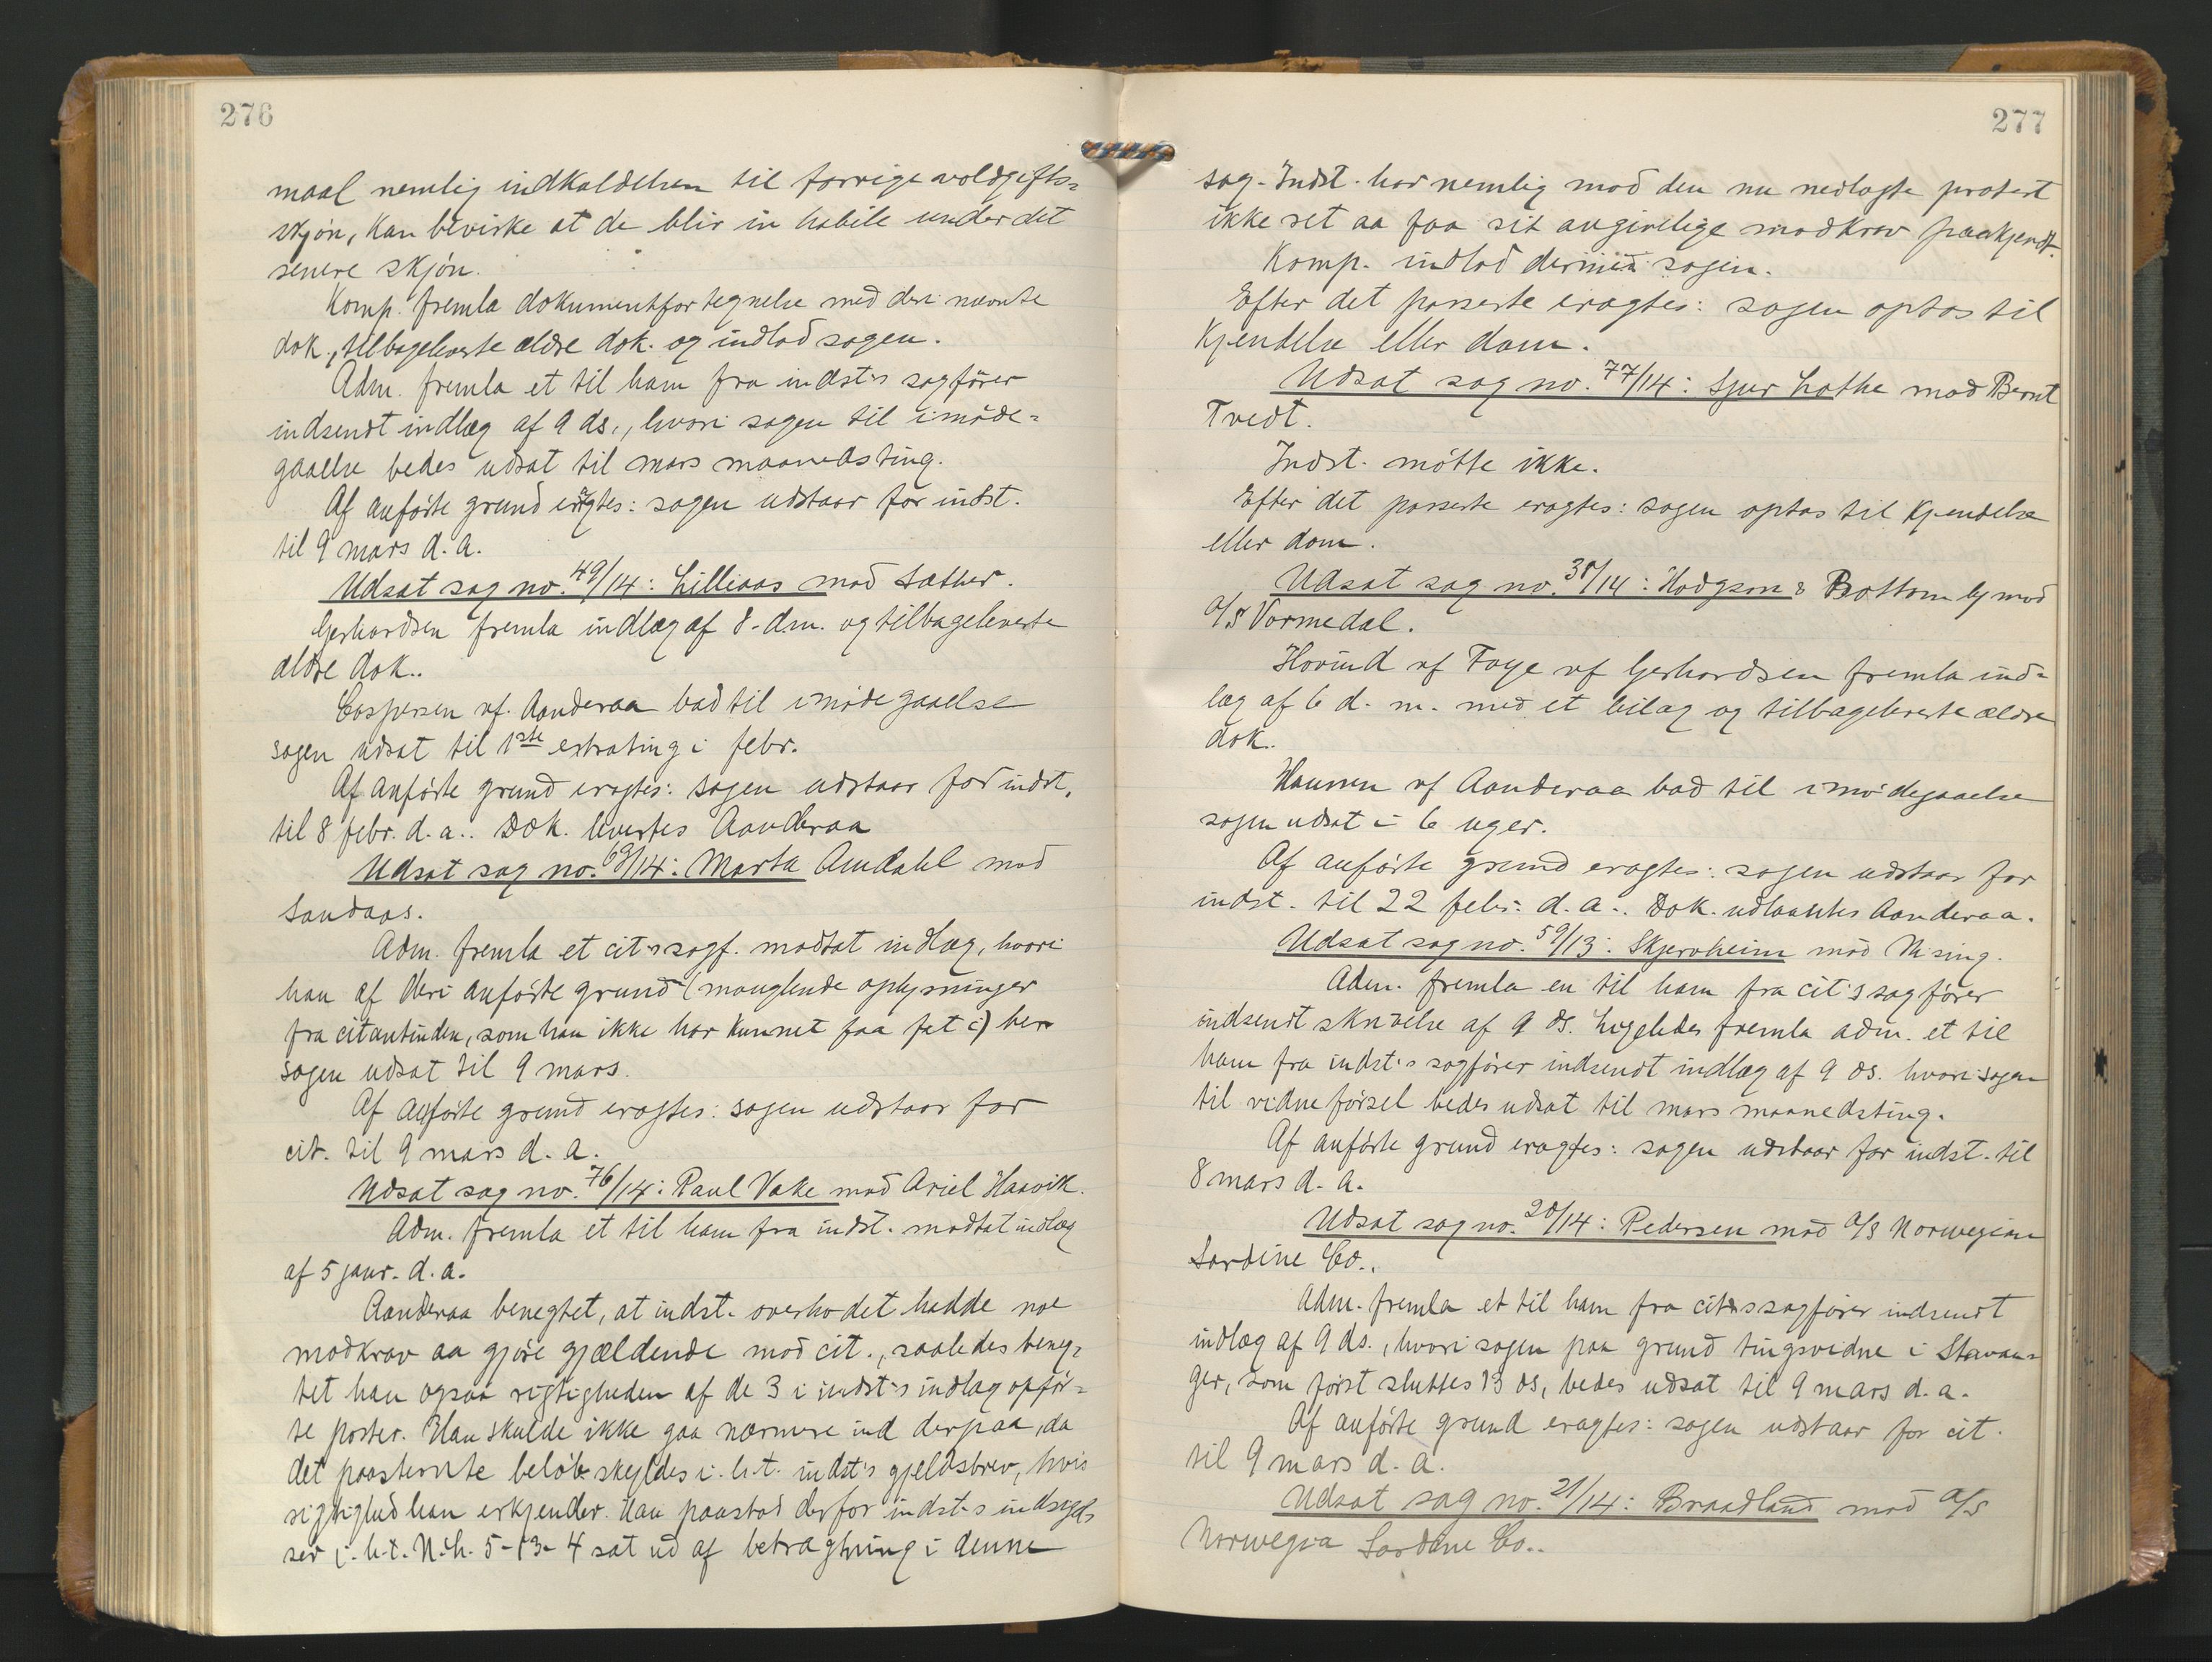 276
maal nemlig indkaldelsen til forrige voldgifts-
skjøn, kan bevirke at de blir in habile under det
senere skjøn.
Komp. fremla dokumentfortegnelse med deri nævnte
dok., tilbageleverte ældre dok. og indlod sagen.
Adm. fremla et til ham fra indst's sagfører
indsendt indlæg af 9 ds., hvori sagen til imøde-
gaaelse bedes udsat til mars maanedsting.
Af anførte grund eragtes: sagen udstaar for indst.
til 9 mars d. a.
Udsat sag no. 49/14: Lilliaas mod Sæther.
Gerhardsen fremla indlæg af 8. dm. og tilbageleverte
ældre dok..
Caspersen vf. Aanderaa bad til imødegaaelse
sagen udsat til 1ste extrating i febr.
Af anførte grund eragtes: sagen udstaar for indst.
til 8 febr. d. a.. Dok. levertes Aanderaa
Udsat sag no. 63/14: Marta Amdahl mod
Sandaas.
Adm. fremla et cit's sagf. modtat indlæg, hvori
han af deri anførte grund (manglende oplysninger
fra citantinden, som han ikke har kunnet faa fat i) ber
sagen udsat til 9 mars.
Af anførte grund eragtes: sagen udstaar for
cit. til 9 mars d. a.
Udsat sag no. 76/14: Paul Vake mod Ariel Haavik.
Adm. fremla et til ham fra indst. modtat indlæg
af 5 janr. d. a.
Aanderaa benegtet, at indst. overhodet hadde noe
modkrav aa gjøre gjældende mod cit., saaledes beneg-
tet han ogsaa rigtigheden af de 3 i indst's indlæg opfør-
te poster. Han skulde ikke gaa nærmere ind derpaa, da
det paastevnte beløb skyldes i. h. t. indst's gjeldsbrev, hvis
rigtighed han erkjender. Han paastod derfor indst's indsigel-
ser i. h. t. N. L. 5-13-4 sat ud af betragtning i denne
277
sag. Indst. har nemlig mod den nu nedlagte protest
ikke ret aa faa sit angivelige modkrav paakjendt.
Komp. indlod dermed sagen.
Efter det passerte eragtes: sagen optas til
kjendelse eller dom.
Udsat sag no. 77/14: Sjur Lothe mod Bernt
Tvedt.
Indst. møtte ikke.
Efter det passerte eragtes: sagen optas til kjendelse
eller dom.
Udsat sag no. 38/14: Hodgson & Bottomley mod
a/s Vormedal.
Hovind vf Faye vf Gerhardsen fremla ind-
læg af 6 d. m. med et bilag og tilbageleverte ældre
dok.
Hansen vf Aanderaa bad til imødegaaelse
sagen udsat i 6 uger.
Af anførte grund eragtes: sagen udstaar for
indst. til 22 febr. d. a.. Dok. udlaantes Aanderaa.
Udsat sag no. 59/13: Skjervheim mod Nising.
Adm. fremla en til ham fra cit's sagfører
indsendt skrivelse af 9 ds. Ligeledes fremla adm. et til
ham fra indst's sagfører indsendt indlæg af 9 ds. hvori sagen
til vidneførsel bedes udsat til mars maanedsting.
Af anførte grund eragtes: sagen udstaar for indst. til
8 mars d. a.
Udsat sag no. 20/14: Pedersen mod a/s Norwegian
Sardine Co..
Adm. fremla et til ham fra cit's sagfører indsendt
indlæg af 9 ds., hvori sagen paa grund tingsvidne i Stavan-
ger, som først sluttes 13 ds, bedes udsat til 9 mars d. a.
Af anførte grund eragtes: sagen udstaar for cit.
til 9 mars d. a.
Udsat sag no. 21/14: Braadland mod a/s
Norwegia Sardine Co..